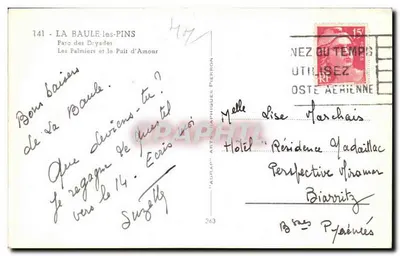 141 - LA BAULE-les-PINS
Parc des Dryades
Les Palmiers et le Puit d'Amour
47
15F
RF
NEZ DU TEMPS
UTILISEZ
OSTE AERIENNE
Bons baisers
de La Baule.
Que deviens-tu?
Je regagne
vers le 14. Ecris moi
Suzette
Melle Lise Marchais
Hôtel "Résidence Nadaillac
Perspective Miramar
Biarritz
Bses Pyrénées
263